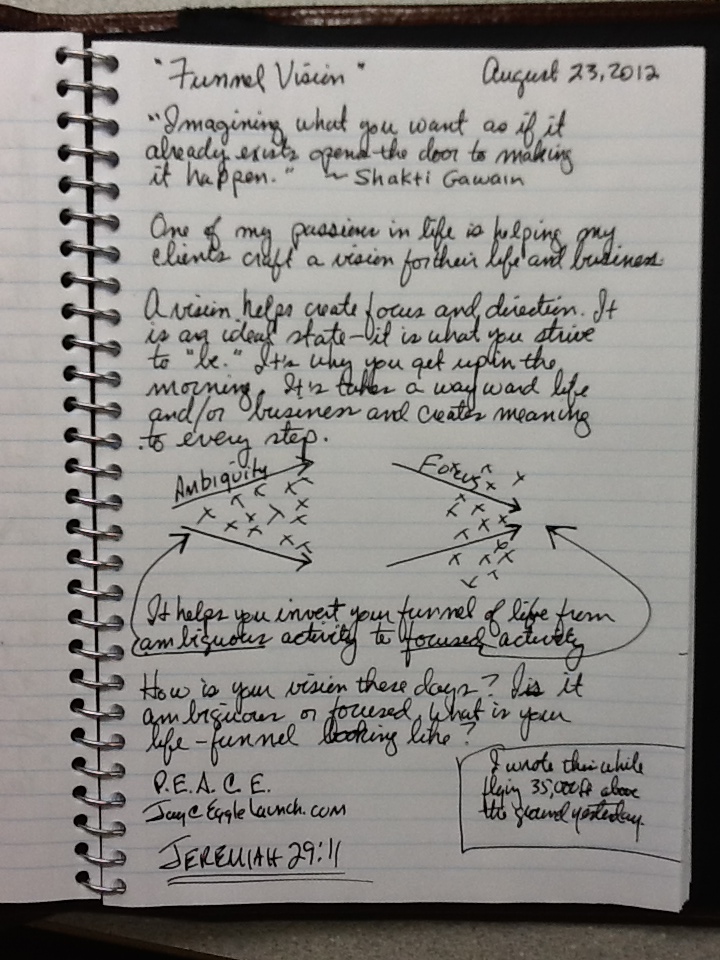 "Funnel Vision" August 23, 2012
"Imagining what you want as if it
already exists opens the door to making
it happen." ~ Shakti Gawain
One of my passions in life is helping my
clients craft a vision for their life and business.
A vision helps create focus and direction. It
is an ideal state - it is what you strive
to "be." It's why you get up in the
morning. It's takes a wayward life
and/or business and creates meaning
to every step.
Ambiguity Focus
It helps you invert your funnel of life from
ambiguous activity to focused activity
How is your vision these days? Is it
ambiguous or focused. What is your
life-funnel looking like?
P.E.A.C.E.
I wrote this while
flying 35,000ft above
the ground yesterday.
JEREMIAH 29:11